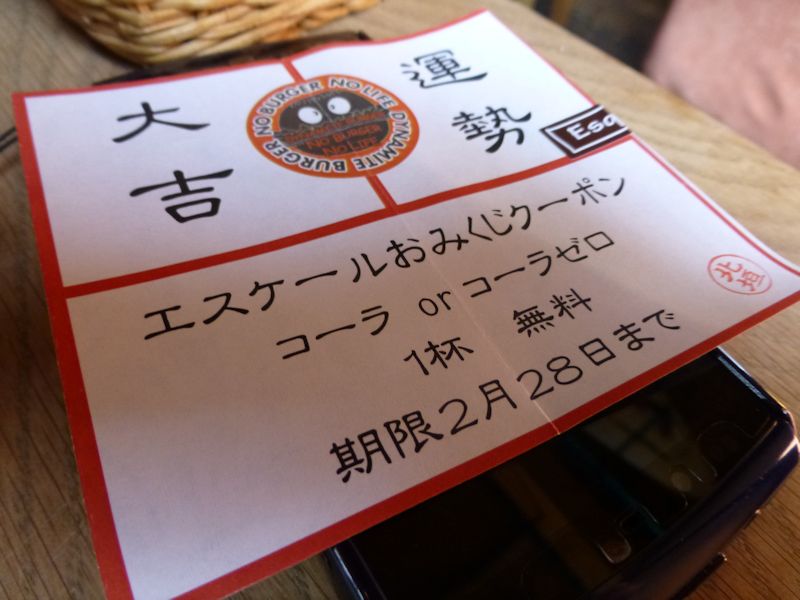 運勢
大吉
NO BURGER NO LIFE
DYNAMITE BURGER
NO BURGER
NO LIFE
Esc
エスケールおみくじクーポン
コーラ or コーラゼロ
1杯 無料
期限2月28日まで
北垣